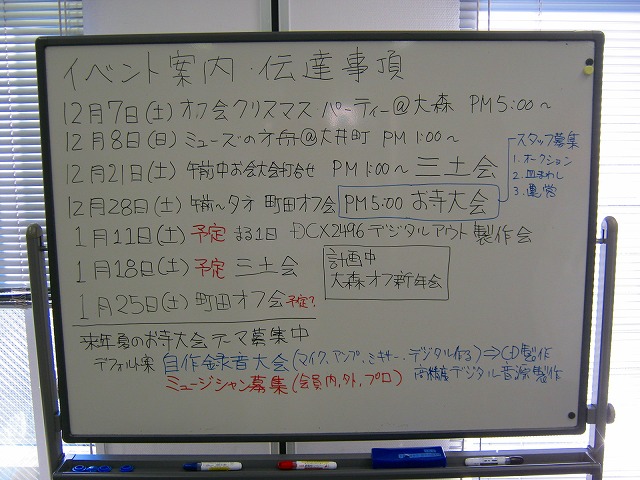 イベント案内・伝達事項
12月7日(土) オフ会クリスマス・パーティー@大森 PM5:00~
12月8日(日) ミューズの方舟@大井町 PM 1:00~
12月21日(土) 午前中お会大会打合せ PM 1:00~ 三土会
12月28日(土) 午前~夕方 町田オフ会 PM5:00 お寺大会
スタッフ募集
1. オークション
2. 皿まわし
3. 運営
1月11日(土) 予定 まる1日 DCX2496 デジタルアウト製作会
1月18日(土) 予定 三土会
計画中
大森オフ新年会
1月25日(土) 町田オフ会予定?
来年夏のお寺大会テーマ募集中
デフォルト案 自作録音大会(マイク、アンプ、ミキサー、デジタル作る)⇒CD製作
高精度デジタル音源製作
ミュージシャン募集(会員内,外,プロ)